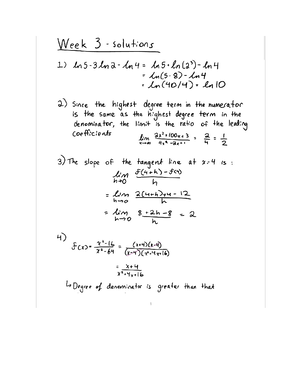 Week 3 - solutions
1.) ln5 - 3ln2 - ln4 = ln5 + ln(2³) - ln4
= ln(5·8) - ln4
= ln(40/4) = ln10
2) Since the highest degree term in the numerator
is the same as the highest degree term in the
denominator, the limit is the ratio of the leading
coefficients
lim = 2/4 = 1/2
3) The slope of the tangent line at x=4 is :
lim h→0 f(4+h)-f(4) / h
= lim h→0 2(4+h)+4-12 / h
= lim h→0 8+2h-8 / h = 2
4)
f(x) = x²-16 / x³-64 = (x+4)(x-4) / (x-4)(x²+4x+16)
= x+4 / x²+4x+16
↳ Degree of denominator is greater than that